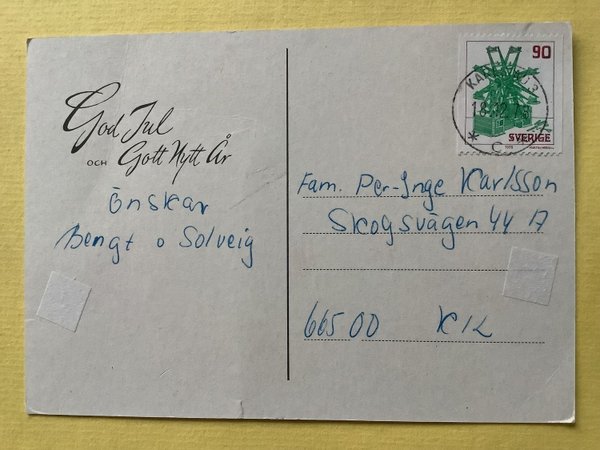 God Jul
och Gott Nytt År
önskar
Bengt o Solveig
90
SVERIGE
Fam. Per-Inge Karlsson
Skogsvägen 44 A
665 00 KIL